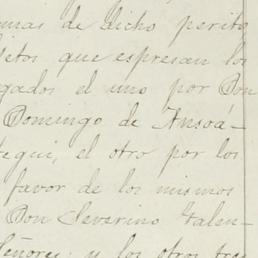 mas de dicho perito
jetos que espresan los
gados el uno por Don
Domingo de Ansoá-
tegui, el otro por los
favor de los mismos
Don Severino Valen-
Señores; y los otros tres